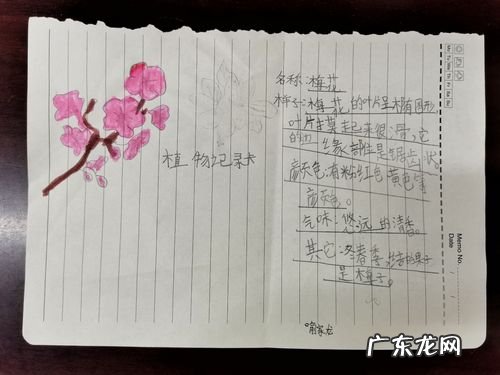 植物记录卡
名称：梅花
样子：梅花的叶片呈椭圆形
叶片摸起来很滑，它
的边缘部位是锯齿状。
颜色：有粉红色黄色等
颜色。
气味：悠远的清香。
其它：冬春季，结的果子
是梅子。
Memo No.
Date / /
Mo Tu We Th Fr Sa Su
喻家龙
广东龙网